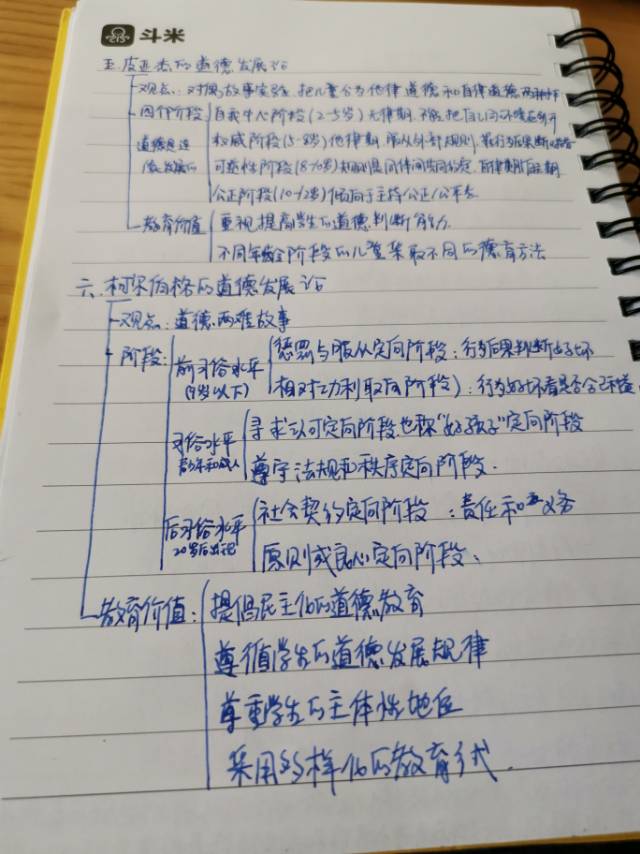 斗米
五.皮亚杰的道德发展论
观点:对偶故事实验,把儿童分为他律道德和自律道德两种
四个阶段 自我中心阶段(2-5岁)无律期,不能把自己同环境区别开
权威阶段(5-8岁)他律期,服从外部规则,
道德是连
可逆性阶段(8-10岁)规则是同伴间共同约定,自律期
公正阶段(10-12岁)倾向于主持公正/公平
教育价值 重视提高学生的道德判断能力
不同年龄阶段的儿童采取不同的德育方法
六.柯尔伯格的道德发展论
观点:道德两难故事
阶段: 惩罚与服从定向阶段:行为后果判断好坏
前习俗水平
(9岁以下) 相对功利取向阶段:行为好坏看是否合己利益
寻求认可定向阶段也称“好孩子”定向阶段
习俗水平
青少年和成人 遵守法规和秩序定向阶段.
社会契约定向阶段:责任和义务
后习俗水平
20岁后出现 原则或良心定向阶段、
教育价值: 提倡民主化的道德教育
遵循学生的道德发展规律
尊重学生的主体性地位
采用多样化的教育方式.